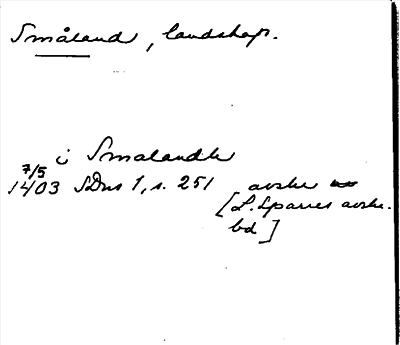 Småland, landskap.
i Smalandh
7/5
1403 SDns 1, s. 251 avskr
[L. Sparres avskr.
bd]